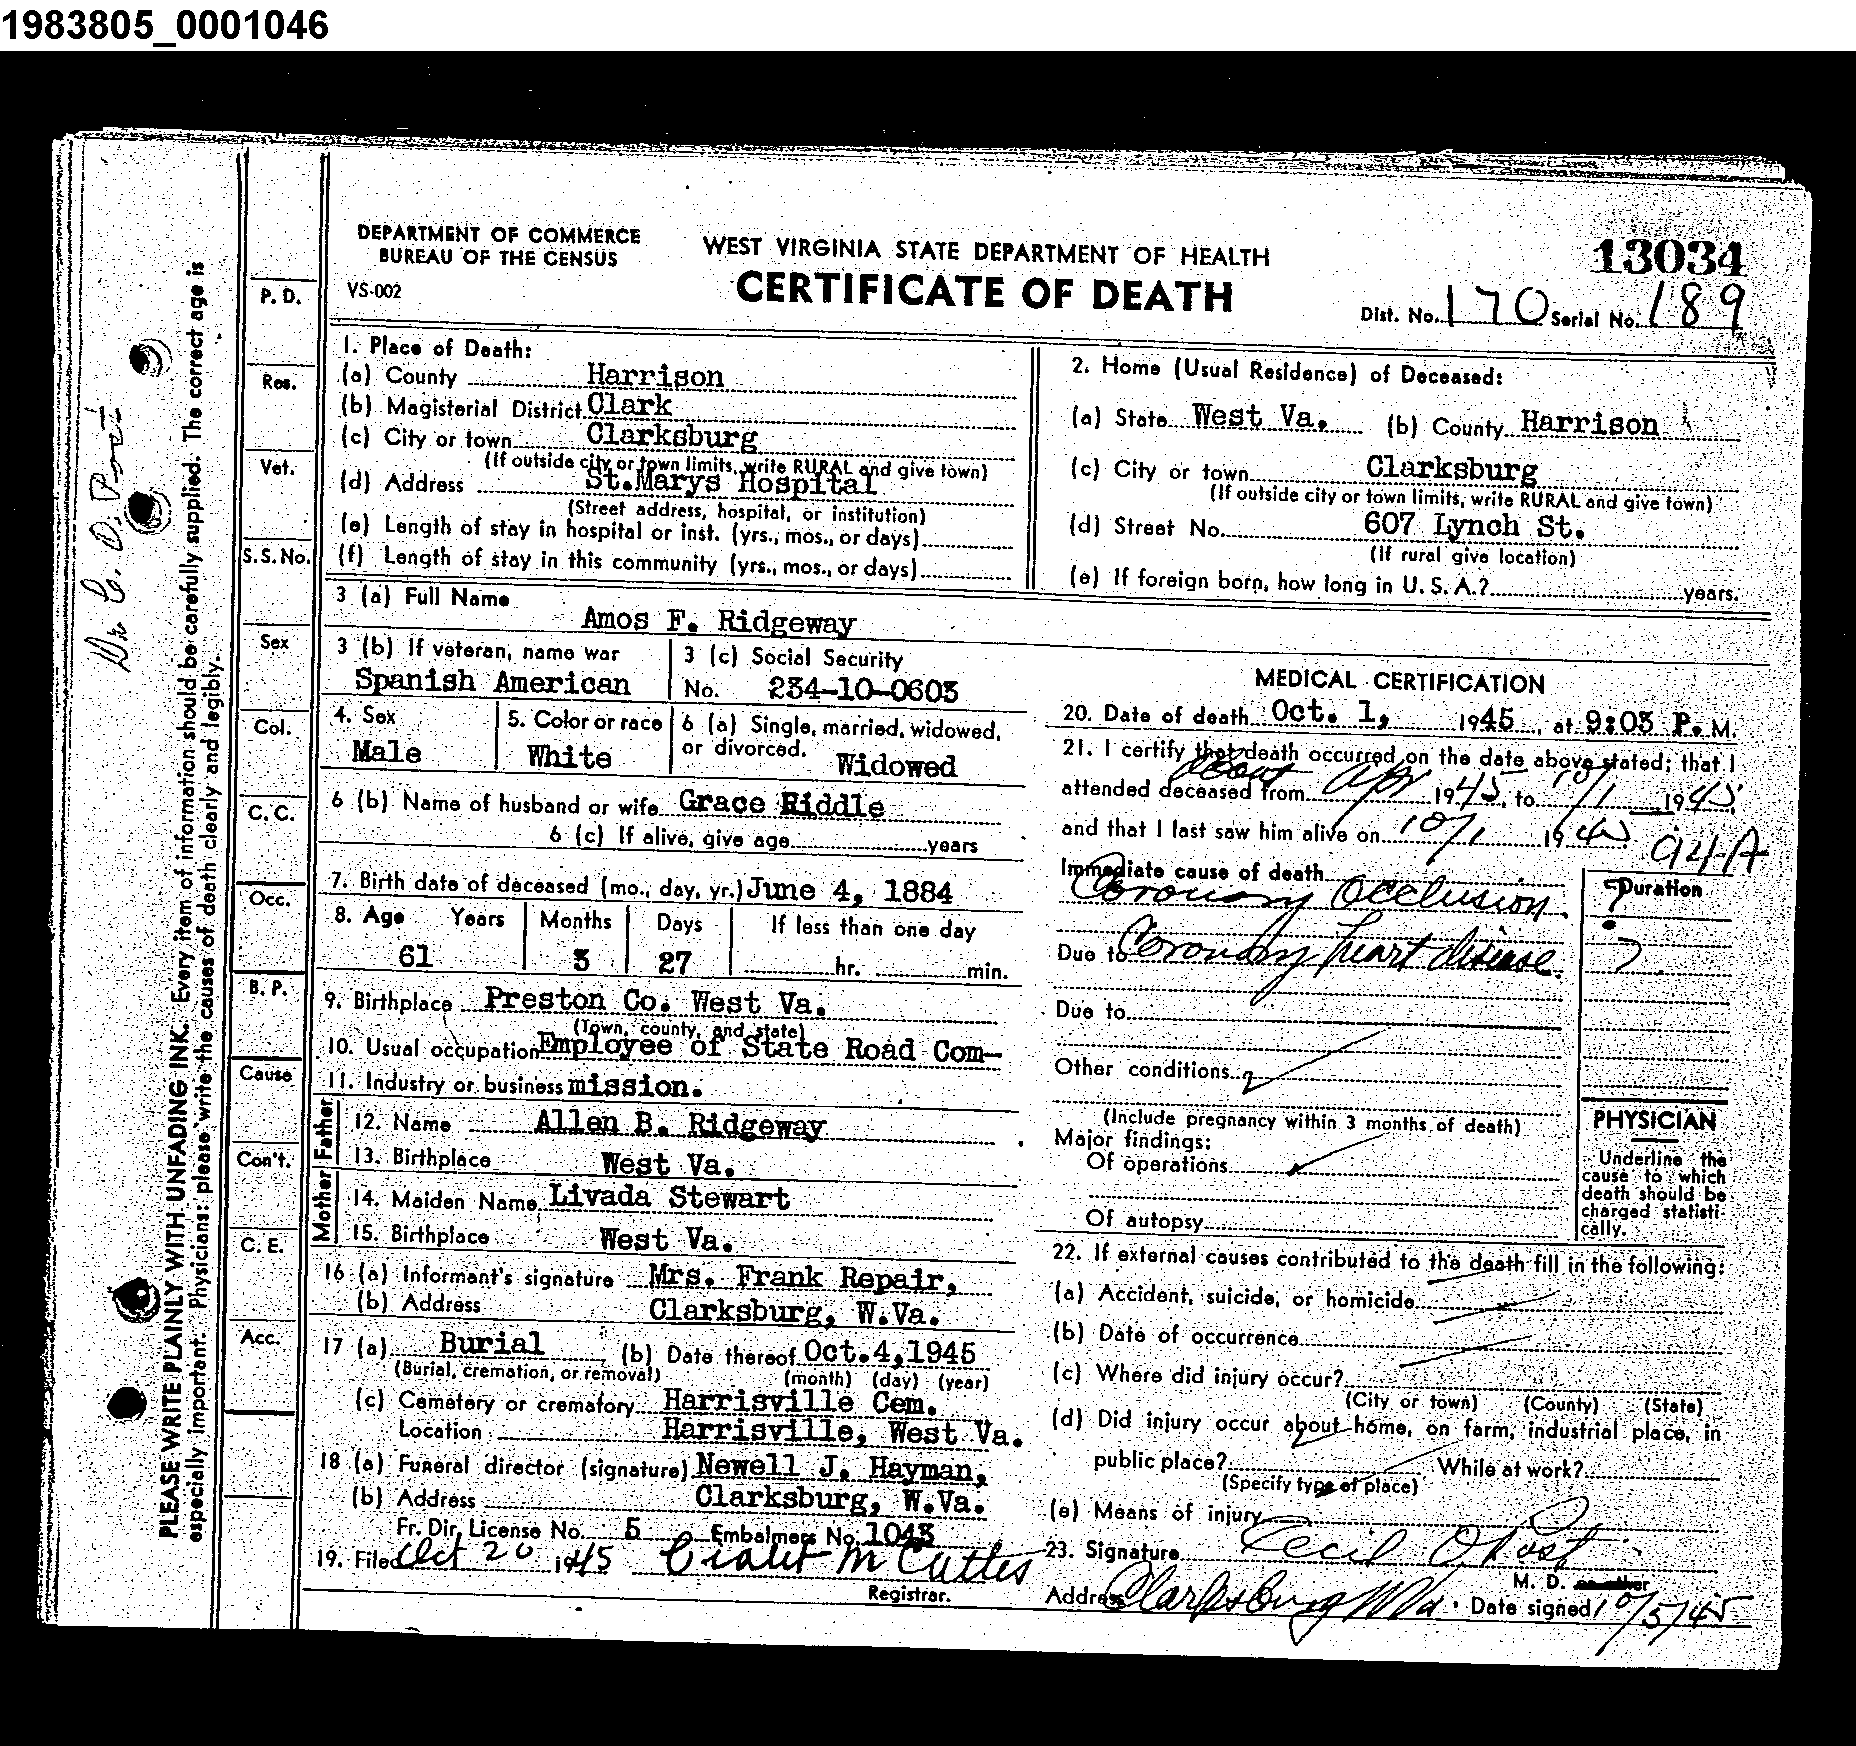 1983805_0001046
DEPARTMENT OF COMMERCE
BUREAU OF THE CENSUS
VS-002
WEST VIRGINIA STATE DEPARTMENT OF HEALTH
CERTIFICATE OF DEATH
13034
Dist. No. 170 Serial No. 189
1. Place of Death:
(a) County Harrison
(b) Magisterial District Clark
(c) City or town Clarksburg
(If outside city or town limits, write RURAL and give town)
(d) Address St.Marys Hospital
(Street address, hospital, or institution)
(e) Length of stay in hospital or inst. (yrs., mos., or days)
(f) Length of stay in this community (yrs., mos., or days)
2. Home (Usual Residence) of Deceased:
(a) State West Va. (b) County Harrison
(c) City or town Clarksburg
(If outside city or town limits, write RURAL and give town)
(d) Street No. 607 Lynch St.
(If rural give location)
(e) If foreign born, how long in U. S. A.? years.
3 (a) Full Name
Amos F. Ridgeway
3 (b) If veteran, name war
Spanish American
3 (c) Social Security
No. 234-10-0603
4. Sex
Male
5. Color or race
White
6 (a) Single, married, widowed,
or divorced. Widowed
6 (b) Name of husband or wife Grace Riddle
6 (c) If alive, give age years
7. Birth date of deceased (mo., day, yr.) June 4, 1884
8. Age Years Months Days If less than one day
61 3 27 hr. min.
9. Birthplace Preston Co. West Va.
(Town, county, and state)
10. Usual occupation Employee of State Road Com-
11. Industry or business mission.
Father
12. Name Allen B. Ridgeway
13. Birthplace West Va.
Mother
14. Maiden Name Livada Stewart
15. Birthplace West Va.
16 (a) Informant's signature Mrs. Frank Repair,
(b) Address Clarksburg, W.Va.
17 (a) Burial (b) Date thereof Oct.4,1945
(Burial, cremation, or removal) (month) (day) (year)
(c) Cemetery or crematory Harrisville Cem.
Location Harrisville, West Va.
18 (a) Funeral director (signature) Newell J. Hayman,
(b) Address Clarksburg, W.Va.
Fr. Dir. License No. 5 Embalmers No. 1043
19. Filed Oct 20 1945
Registrar.
MEDICAL CERTIFICATION
20. Date of death Oct. 1, 1945, at 9:03 P.M.
21. I certify that death occurred on the date above stated; that I
attended deceased from about Apr 1945, to 10/1 1945,
and that I last saw him alive on 10/1 1945
94A
Immediate cause of death
Coronary Occlusion.
Duration
?
Due to Coronary heart disease.
?
Due to
Other conditions
(Include pregnancy within 3 months of death)
Major findings:
Of operations
Of autopsy
PHYSICIAN
Underline the
cause to which
death should be
charged statisti-
cally.
22. If external causes contributed to the death fill in the following:
(a) Accident, suicide, or homicide
(b) Date of occurrence
(c) Where did injury occur?
(City or town) (County) (State)
(d) Did injury occur about home, on farm, industrial place, in
public place? While at work?
(Specify type of place)
(e) Means of injury
23. Signature Cecil O Post
M. D. or other
Address Clarksburg W Va. Date signed 10/5/45
P. D.
Res.
Vet.
S. S. No.
Sex
Col.
C. C.
Occ.
B. P.
Cause
Con't.
C. E.
Acc.
PLEASE WRITE PLAINLY WITH UNFADING INK. Every item of information should be carefully supplied. The correct age is
especially important. Physicians: please write the causes of death clearly and legibly.
Dr C. O. Post